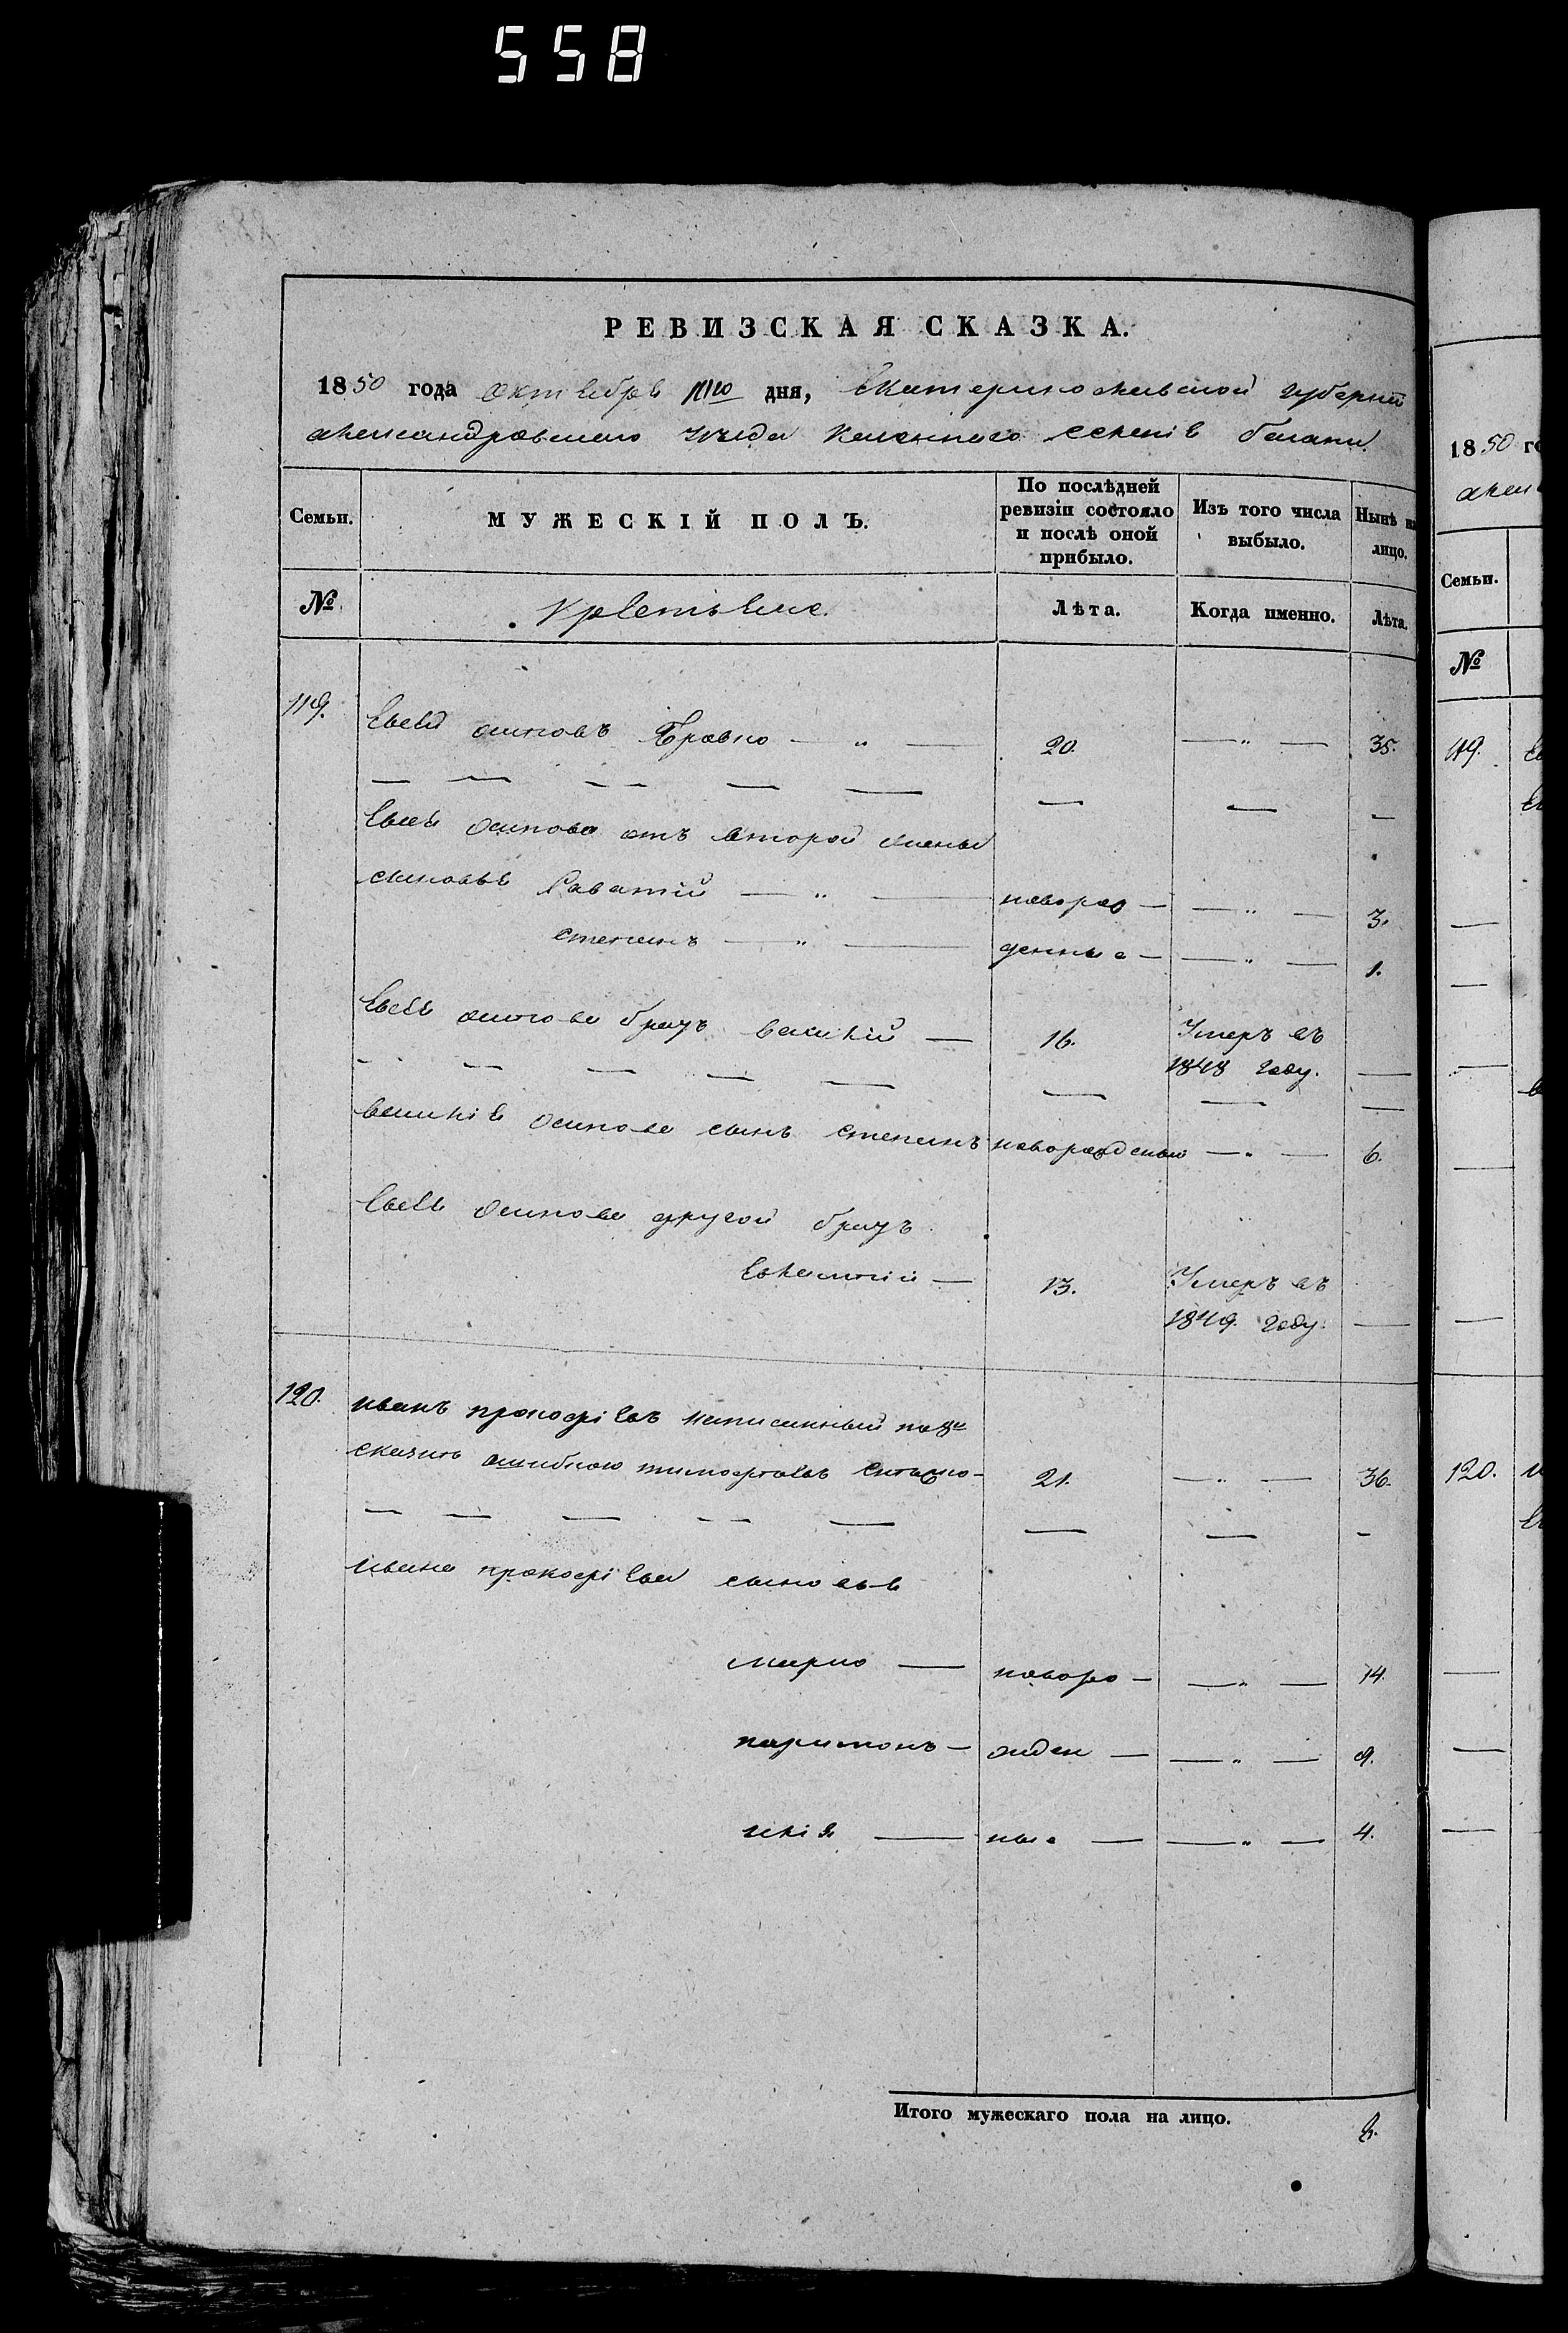 558
РЕВИЗСКАЯ СКАЗКА.
1850 года октября дня, Екатеринославской губернии
Александровского уезда Казенного селенія балани
Семьи.
МУЖЕСКІЙ ПОЛЪ.
По послѣдней ревизіи состояло и послѣ оной прибыло.
Изъ того числа выбыло.
Нынѣ на лицо.
№
Лѣта.
Когда именно.
Лѣта.
119. Евсей осиповъ — " — 20. — " — 35.
Евсея осипова отъ второй жены
сыновья Саватий — " — новорож — — " — 3.
степанъ — " — денные — — " — 1.
Евсея осипова братъ — 16. Умеръ въ
1848 году. —
осипова сынъ степанъ новорожденый — " — 6.
Евсея осипова другой братъ
Евлампий — 13. Умеръ въ
1849. году. —
120. иванъ прокофіевъ написанный по 8й
сказкѣ ошибкою тимофѣевъ 21. — " — 36.
ивана прокофіева сыновья
марко — новоро — — " — 14.
паримонъ — жден — — " — 9.
илія — ные — — " — 4.
Итого мужескаго пола на лицо.
1850 го
Семьи.
№
119.
120.